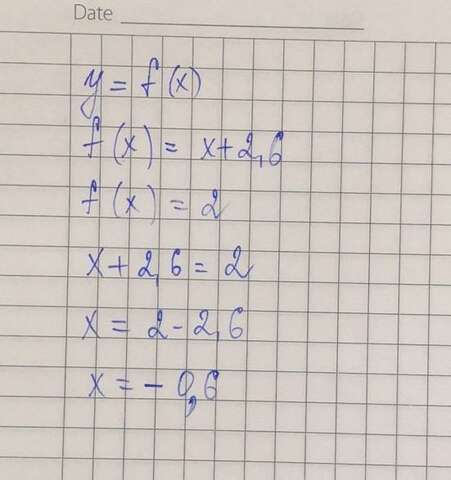 Date
y = f(x)
f(x) = x+2,6
f(x) = 2
x + 2,6 = 2
x = 2 - 2,6
x = - 0,6